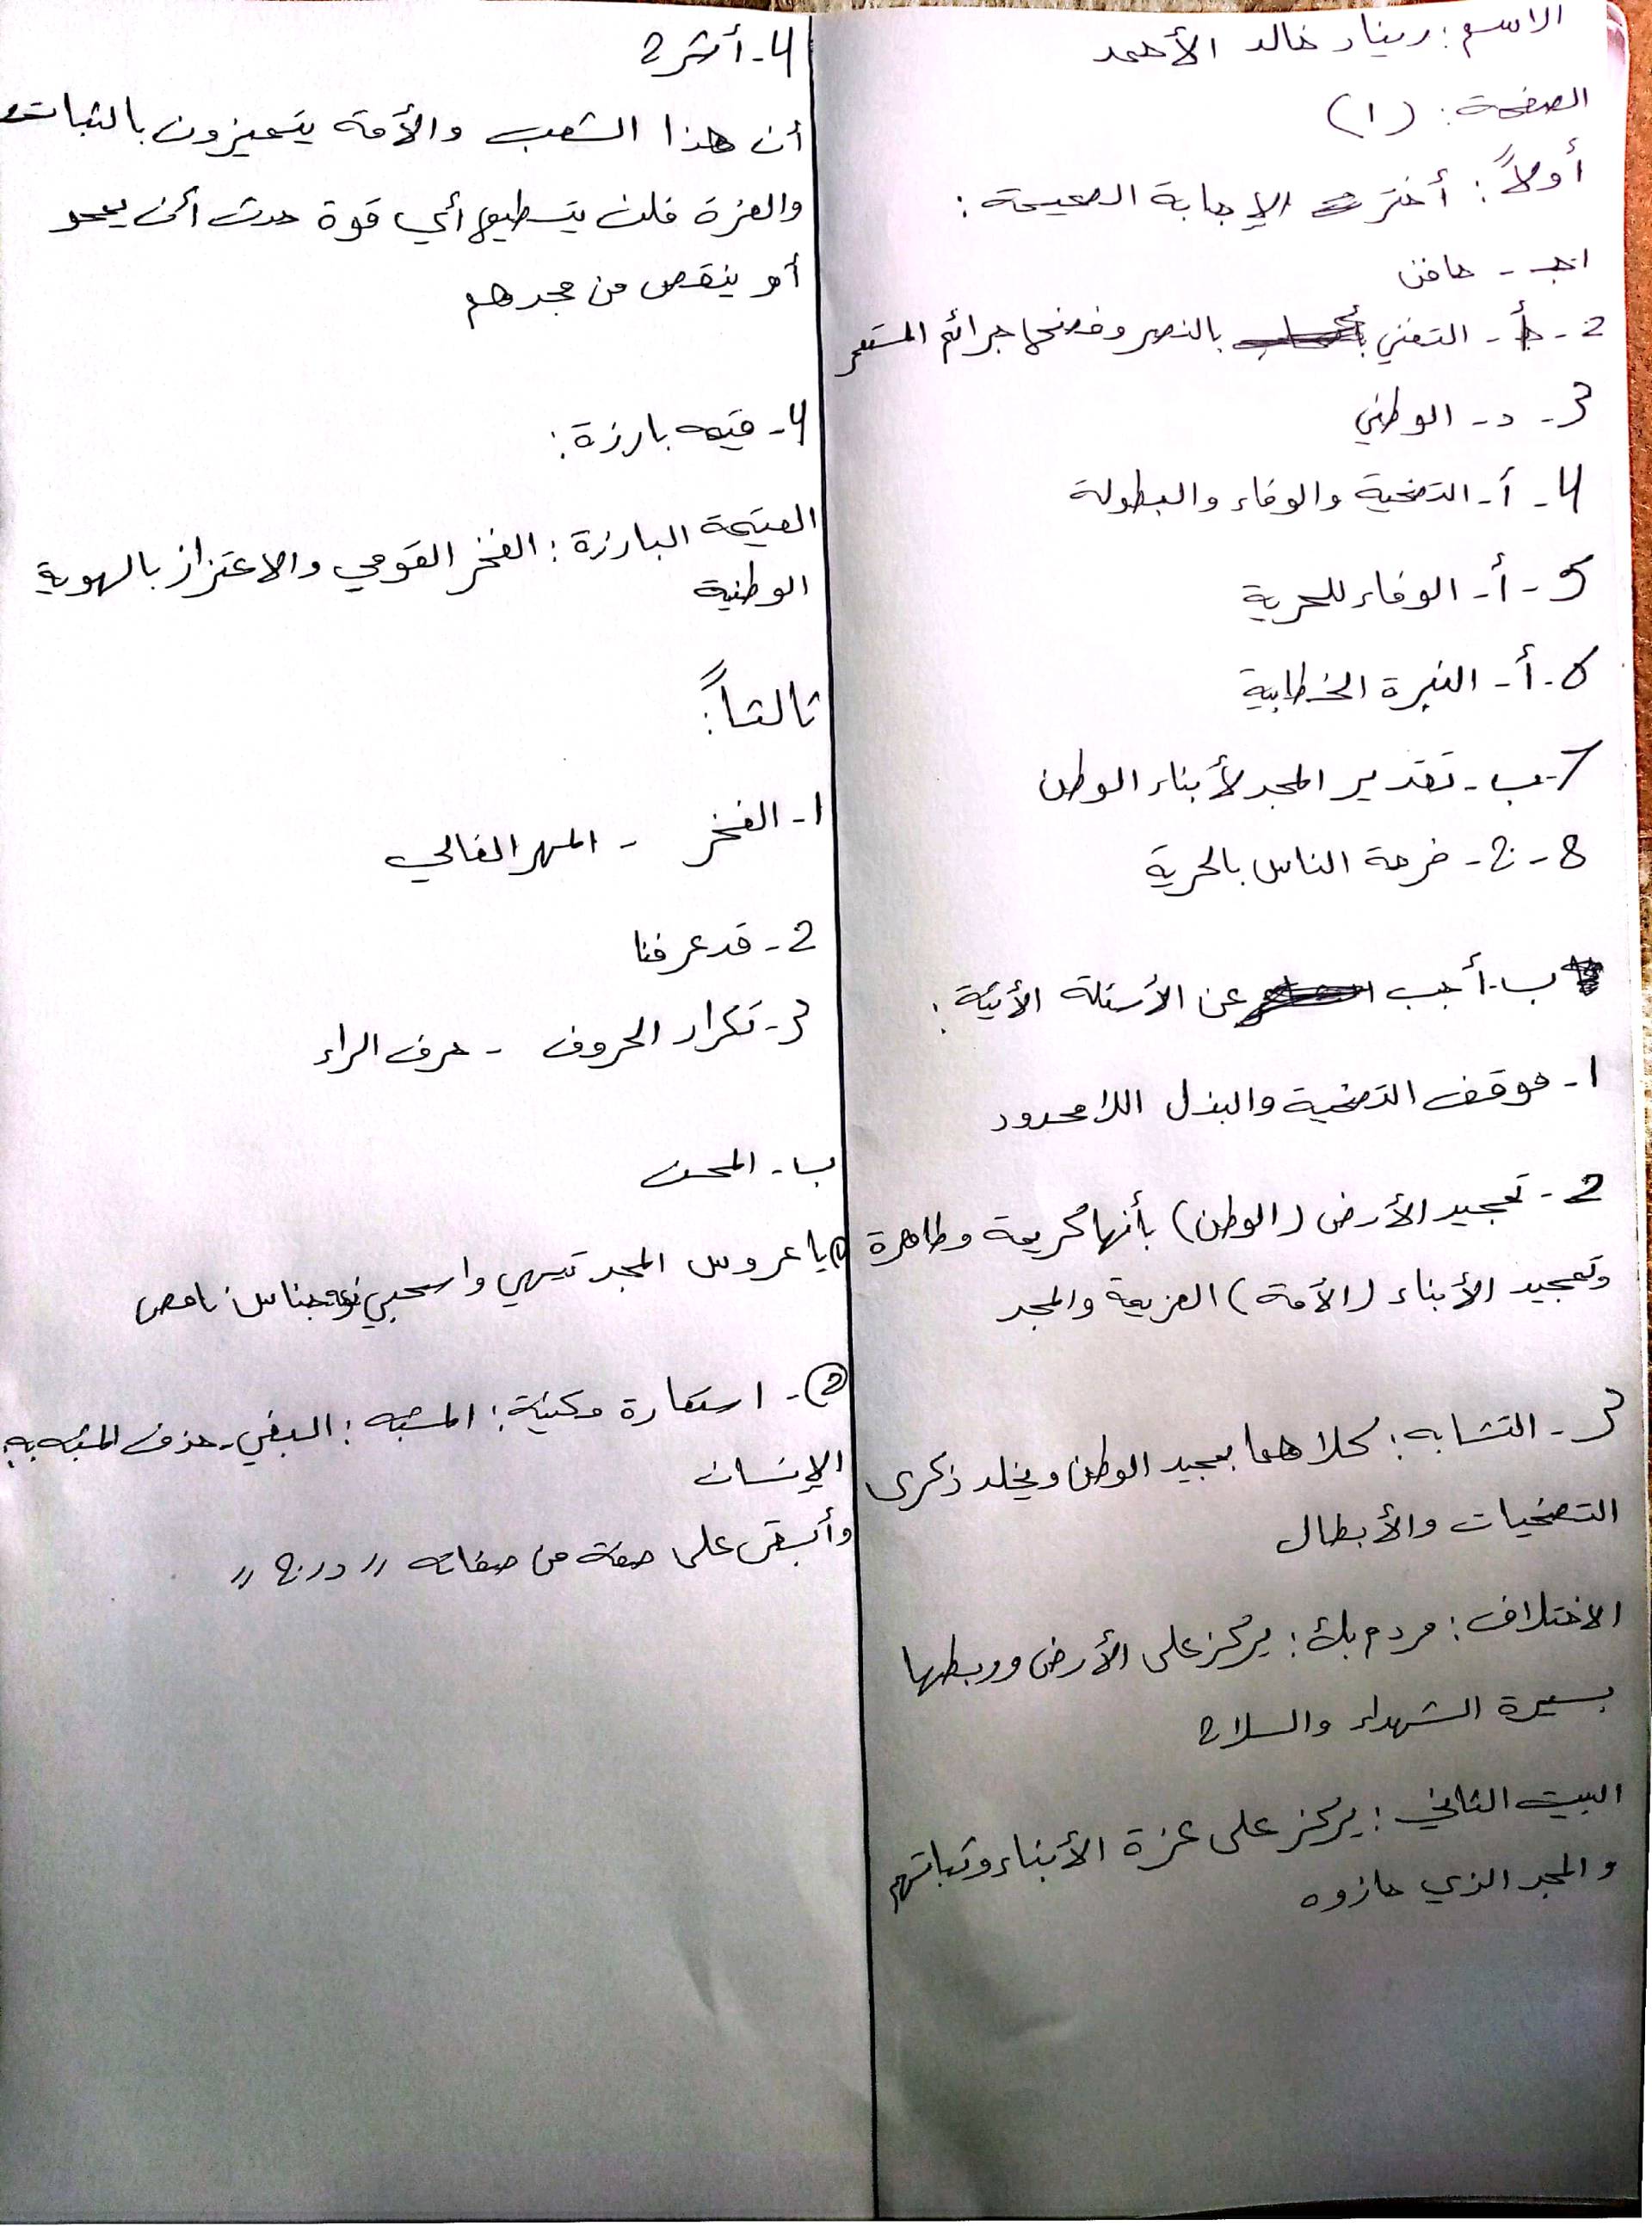 الاسم: ريناد خالد الأحمد
الصفحة: (١)
أولاً: أختر الإجابة الصحيحة:
1ـ جـ - خافن
2-أ- التغني بالنصر وفضح جرائم المستعمر
3- د- الوطني
4- أ- التضحية والوفاء والبطولة
5- أ- الوفاء للحرية
6- أ- النبرة الخطابية
7-ب- تقدير المجد لأبناء الوطن
8- ج- فرحة الناس بالحرية
ب- أجب عن الأسئلة الأتية:
1- موقف التضحية والبذل اللامحدود
2- تمجيد الأرض (الوطن) بأنها كريمة وطاهرة
وتمجيد الأبناء (الأمة) العزيمة والمجد
3- التشابه: كلاهما يمجيد الوطن ويخلد ذكرى
التضحيات والأبطال
الاختلاف: مردم بك: يركز على الأرض وربطها
بسيرة الشهداء والسلاح
البيت الثاني: يركز على عزة الأبناء وثباتهم
والمجد الذي حازوه
4- أشرح
أن هذا الشعب والأمة يتميزون بالثبات
والعزة فلن يتسطيع أي قوة حدث أن يمحو
أو ينقص من مجدهم
4- قيمه بارزة:
القيمة البارزة: الفخر القومي والاعتزاز بالهوية
الوطنية
ثالثاً:
1- الفخر - المهر الغالي
2- قد عرفنا
3- تكرار الحروف - حرف الراء
ب- المحن
1 يا عروس المجد تيهي واسحبي نوعه جناس ناقص
2- استعارة مكنية: المشبه: البغي- حذف المشبه به:
الإنسان
وأبقى على صفة من صفاته "درج"